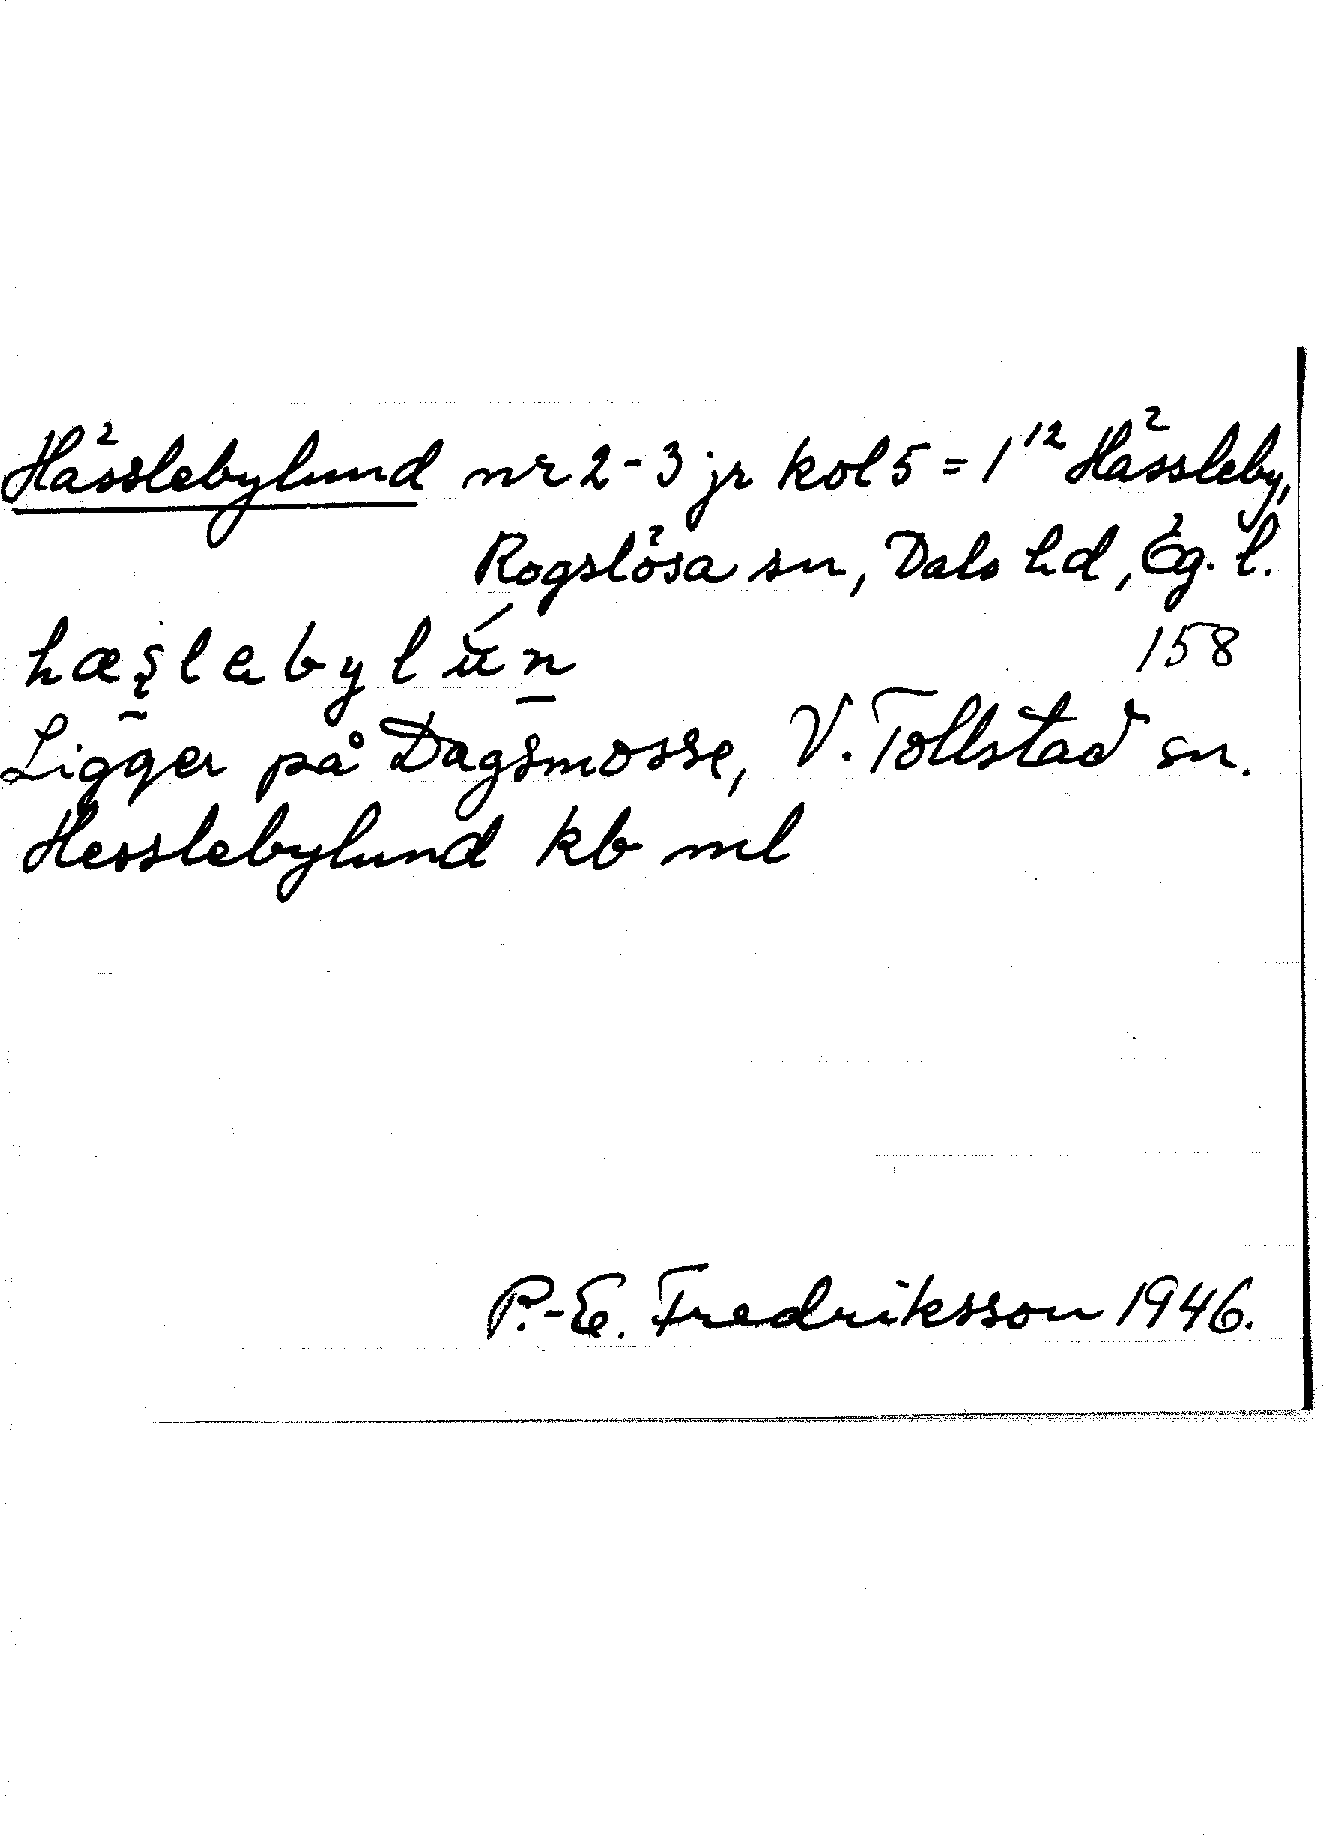 Hässlebylund nr 2-3 jr kol 5 = 1¹² Hässleby,
Rogslösa sn, Dals hd, Ög. l.
158
Ligger på Dagsmosse, V. Tollstad sn.
Hesslebylund kb ml
P.-E. Fredriksson 1946.